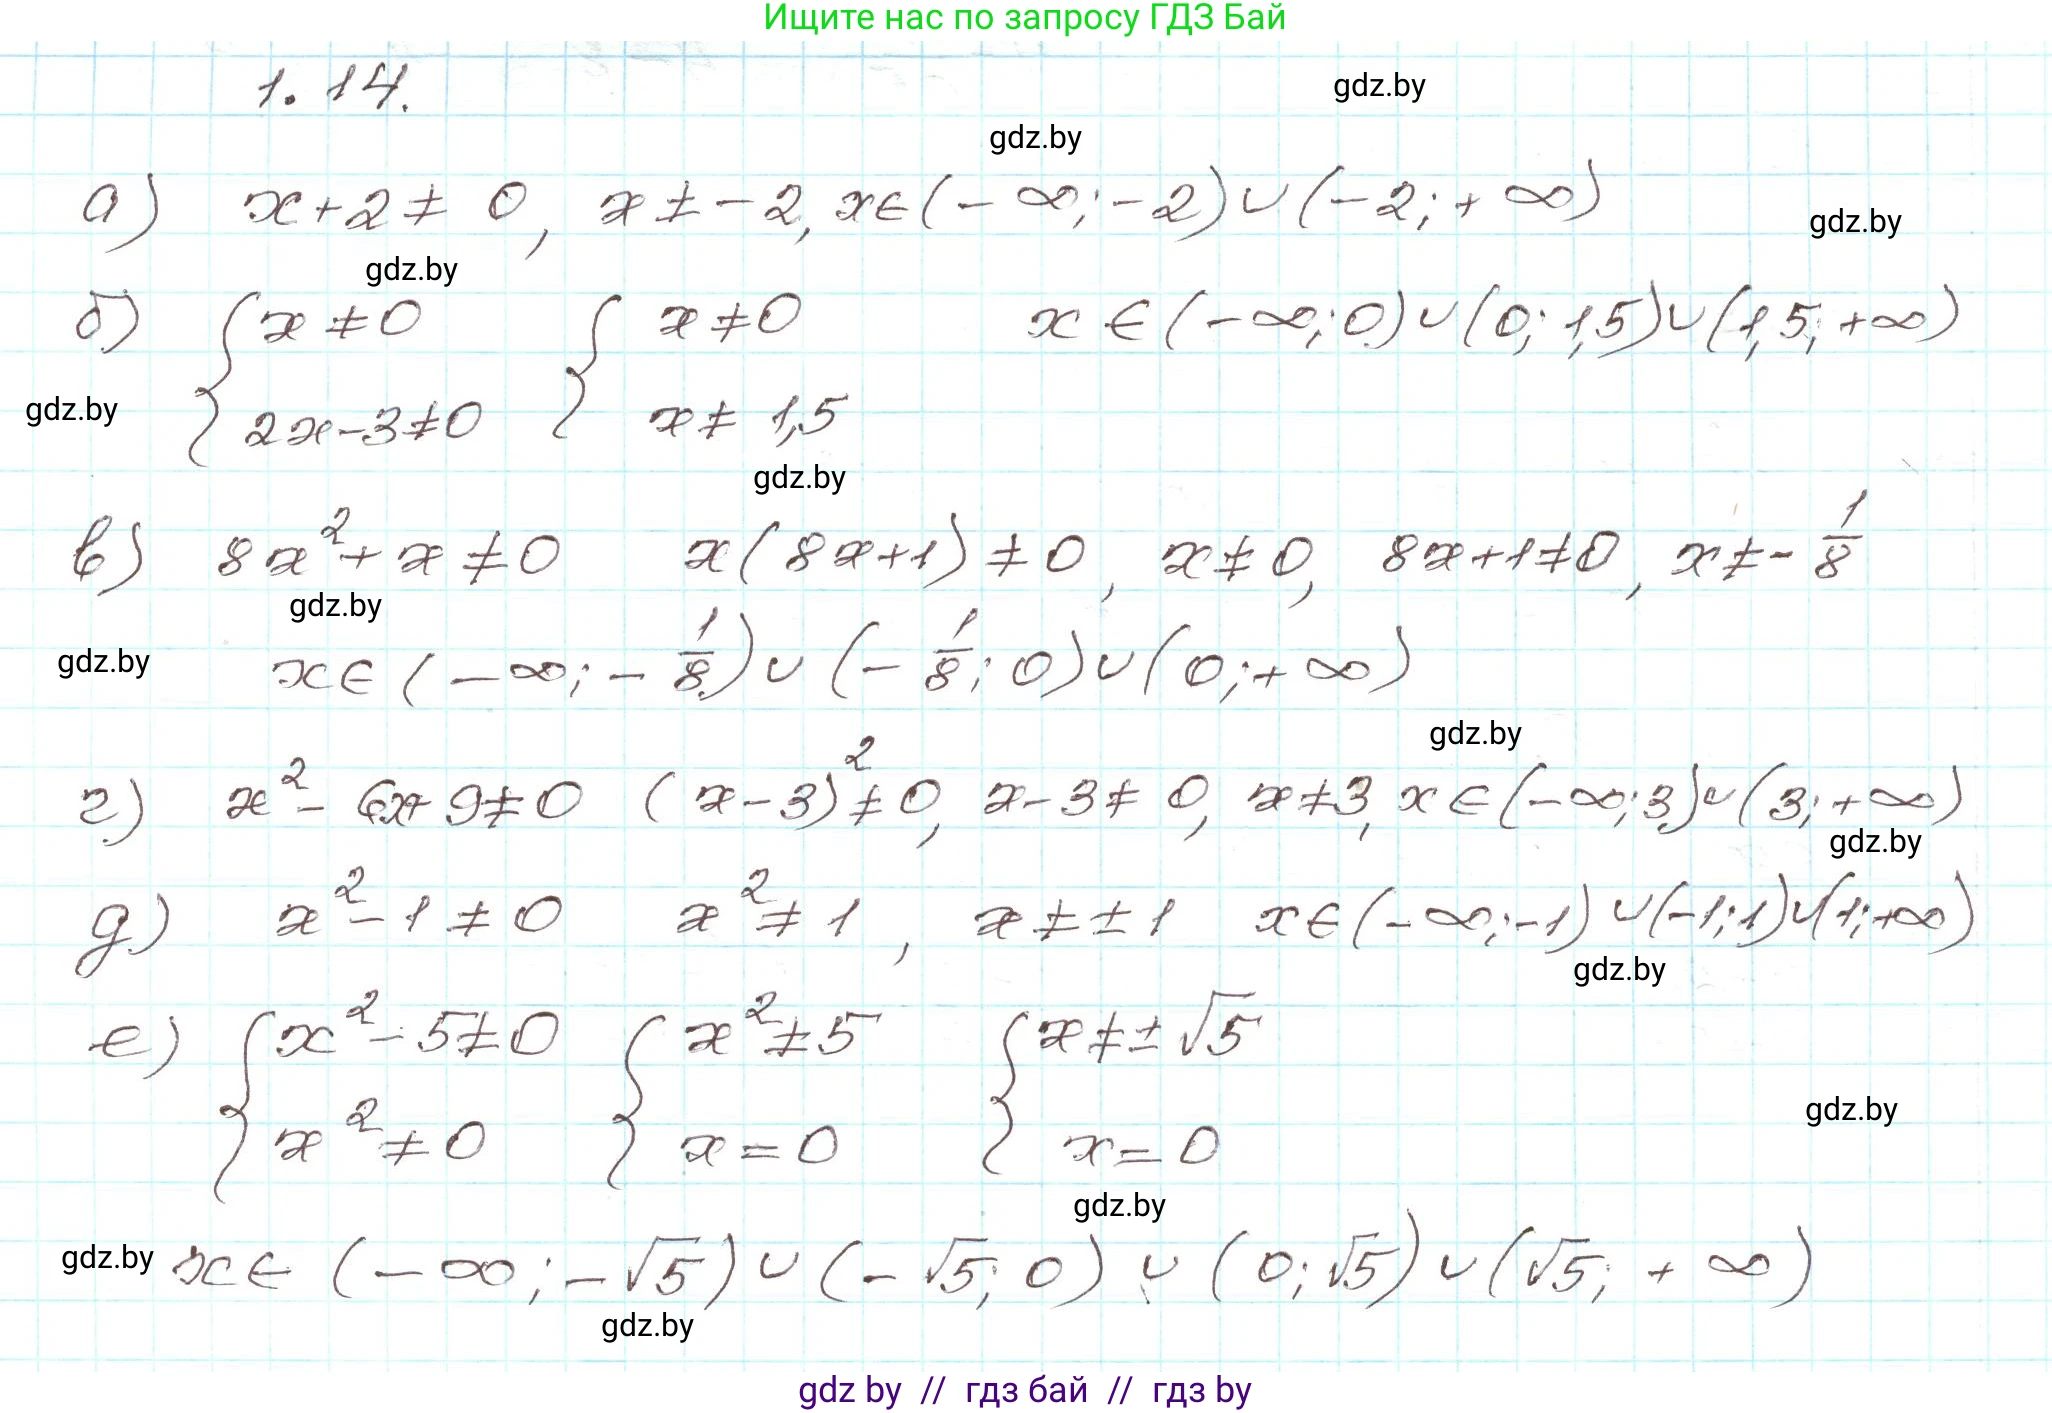 Ищите нас по запросу ГДЗ Бай
1.14.
gdz.by
gdz.by
а) x+2≠0, x≠-2, x∈(-∞;-2)∪(-2;+∞)
gdz.by
gdz.by
б) { x≠0 { x≠0 x∈(-∞;0)∪(0;1,5)∪(1,5;+∞)
gdz.by 2x-3≠0 x≠1,5
gdz.by
в) 8x²+x≠0 x(8x+1)≠0, x≠0, 8x+1≠0, x≠-1/8
gdz.by
gdz.by x∈(-∞;-1/8)∪(-1/8;0)∪(0;+∞)
gdz.by
г) x²-6x+9≠0 (x-3)²≠0, x-3≠0, x≠3, x∈(-∞;3)∪(3;+∞)
gdz.by
д) x²-1≠0 x²≠1, x≠±1 x∈(-∞;-1)∪(-1;1)∪(1;+∞)
gdz.by
е) { x²-5≠0 { x²≠5 { x≠±√5
x²≠0 x=0 x=0
gdz.by
gdz.by
gdz.by x∈(-∞;-√5)∪(-√5;0)∪(0;√5)∪(√5;+∞)
gdz.by
gdz by // гдз бай // гдз by